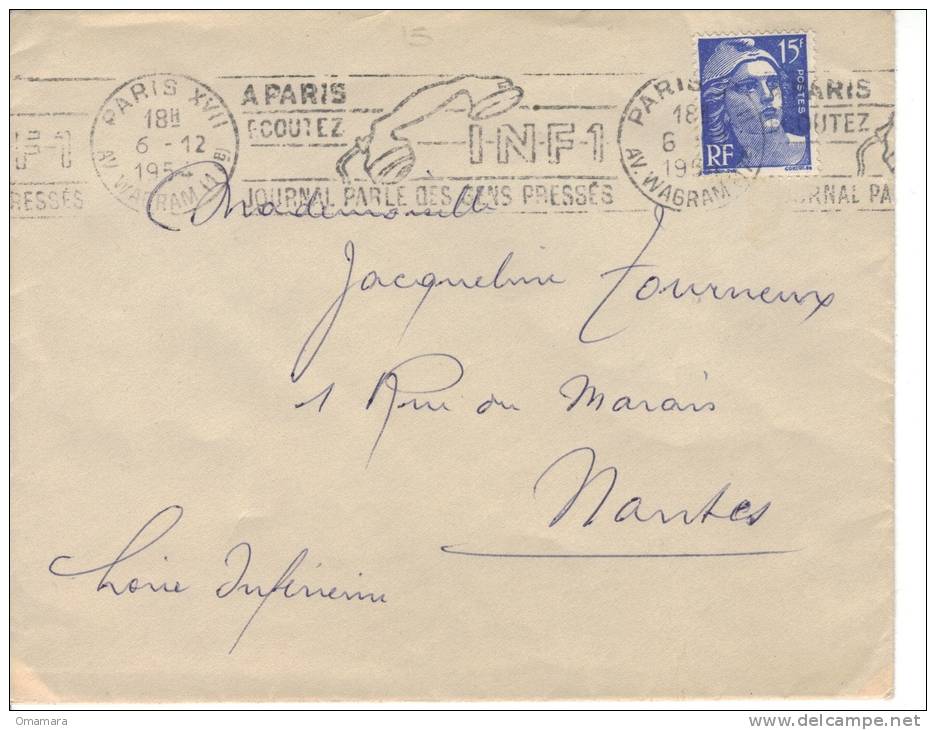 15
PARIS XVII
18H
6 - 12
195
AV. WAGRAM
A PARIS
ECOUTEZ
I·N·F·1
JOURNAL PARLÉ DES GENS PRESSÉS
F-1
RESSÉS
PARIS
18
6
AV. WAGRAM
15F
POSTES
RF
PARIS
OUTEZ
URNAL PA
Mademoiselle
Jacqueline Tourneux
1 Rue du Marais
Nantes
Loire Inférieure
Omamara
www.delcampe.net